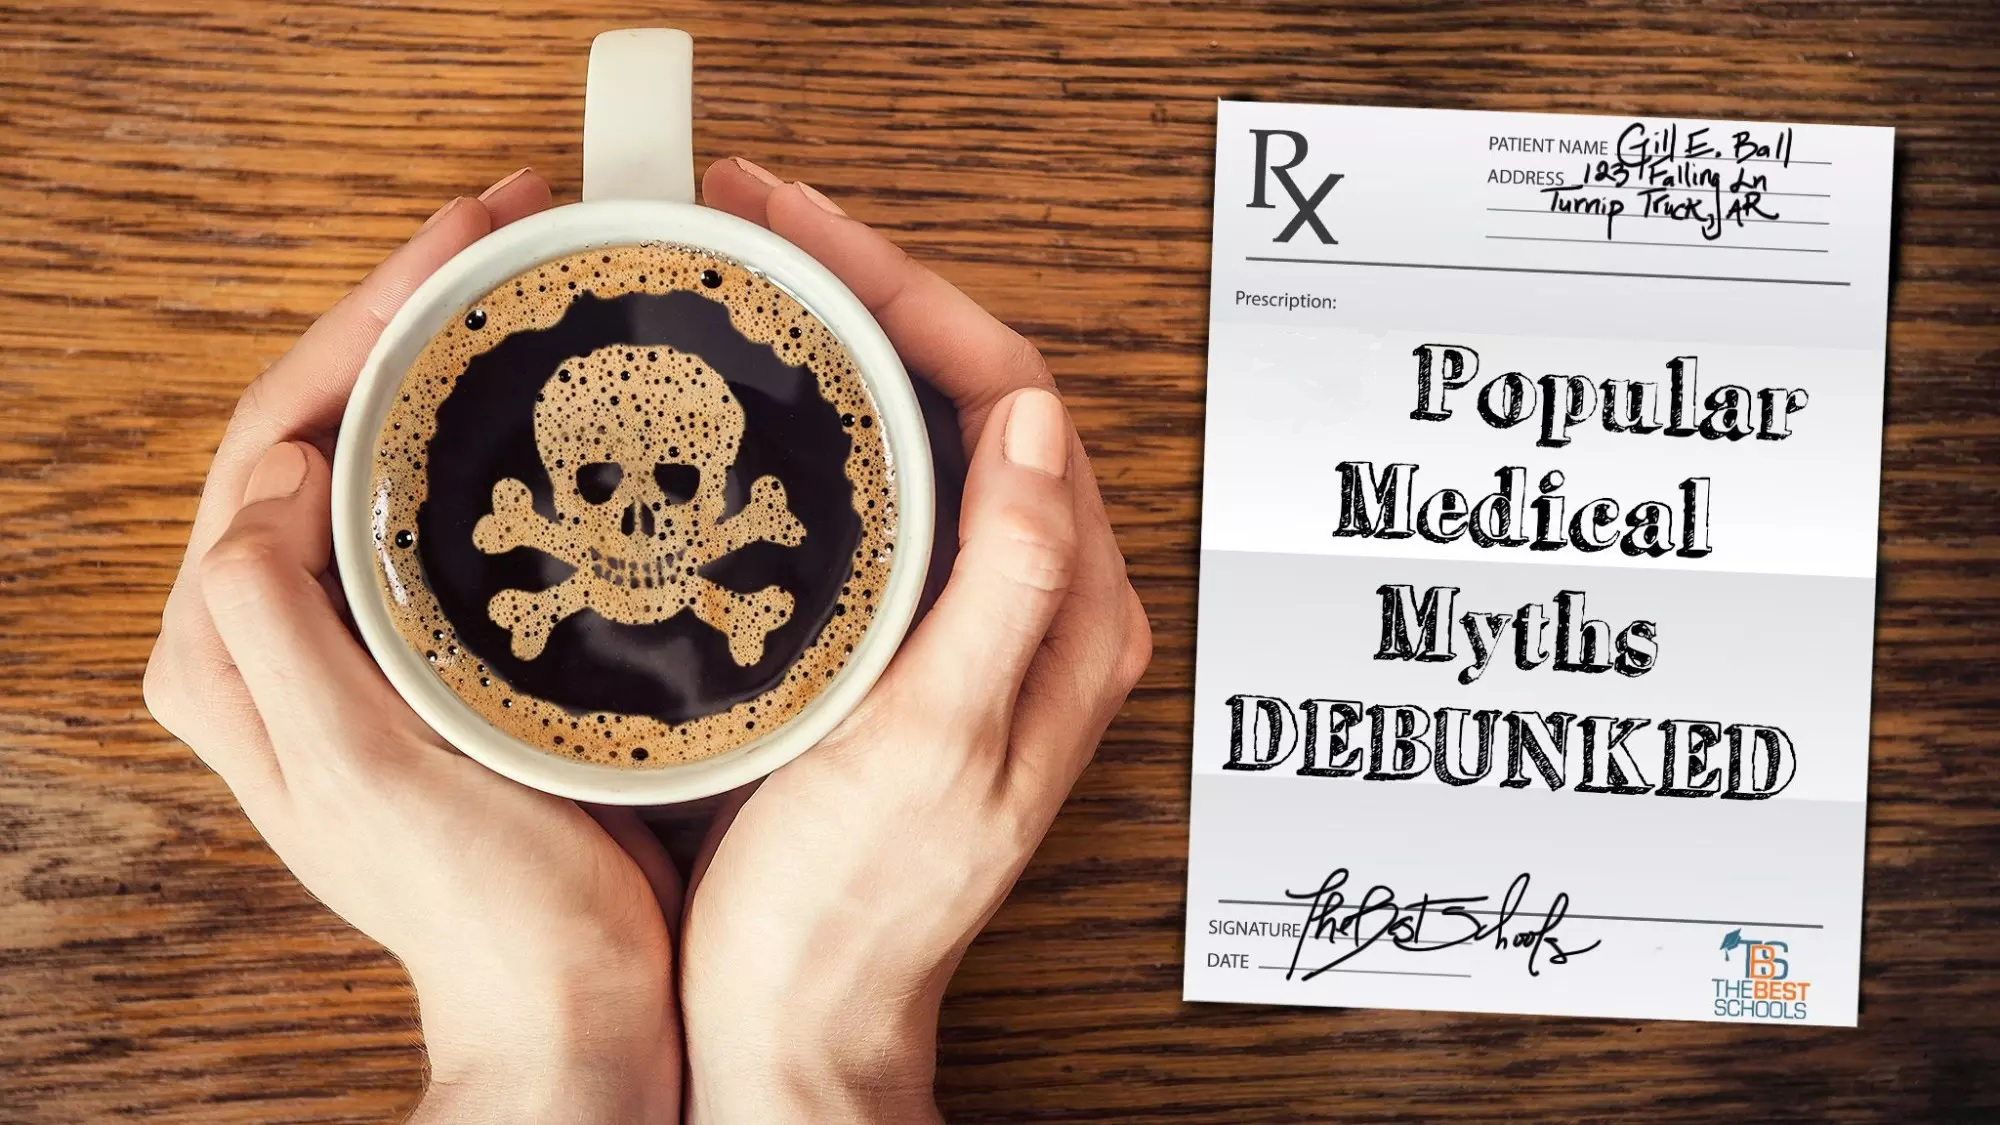 Rx
PATIENT NAME Gill E. Ball
ADDRESS 123 Falling Ln
Turnip Truck, AR
Prescription:
Popular
Medical
Myths
DEBUNKED
SIGNATURE TheBestSchools
DATE
TBS
THEBEST
SCHOOLS